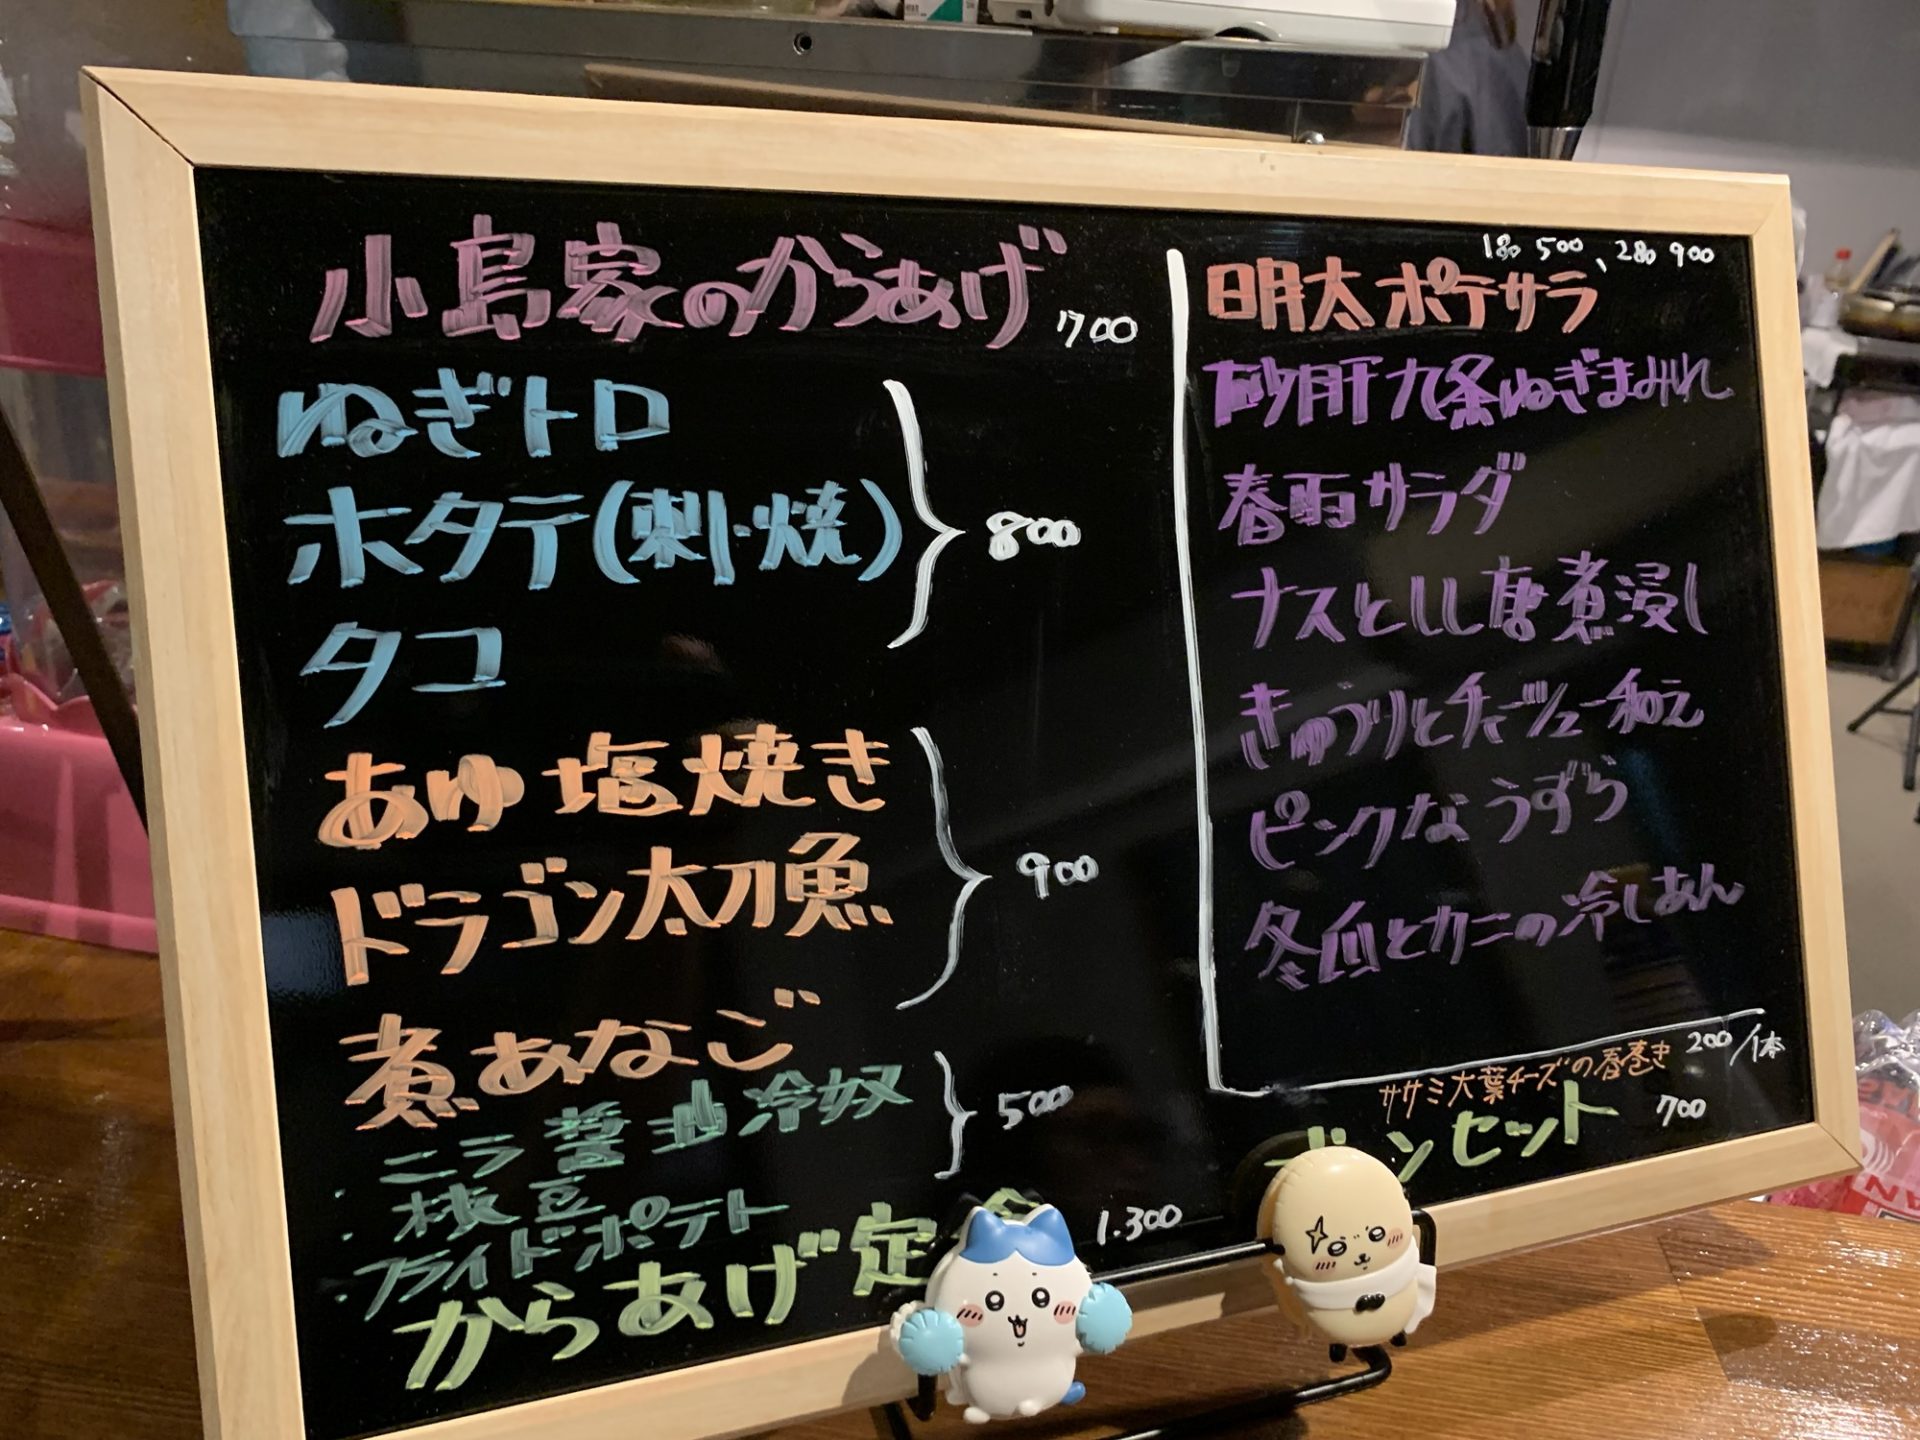 小島家のからあげ 700
ねぎトロ
ホタテ(刺・焼)
タコ
800
あゆ 塩焼き
ドラゴン太刀魚
煮あなご
900
ニラ醤油冷奴
・枝豆
・フライドポテト
500
からあげ定 1.300
1品 500、2品 900
明太ポテサラ
砂肝九条ねぎまみれ
春雨サラダ
ナスとしし唐煮浸し
きゅうりとチャーシュー和え
ピンクなうずら
冬瓜とカニの冷しあん
ササミ大葉チーズの春巻き 200/1本
ンセット 700